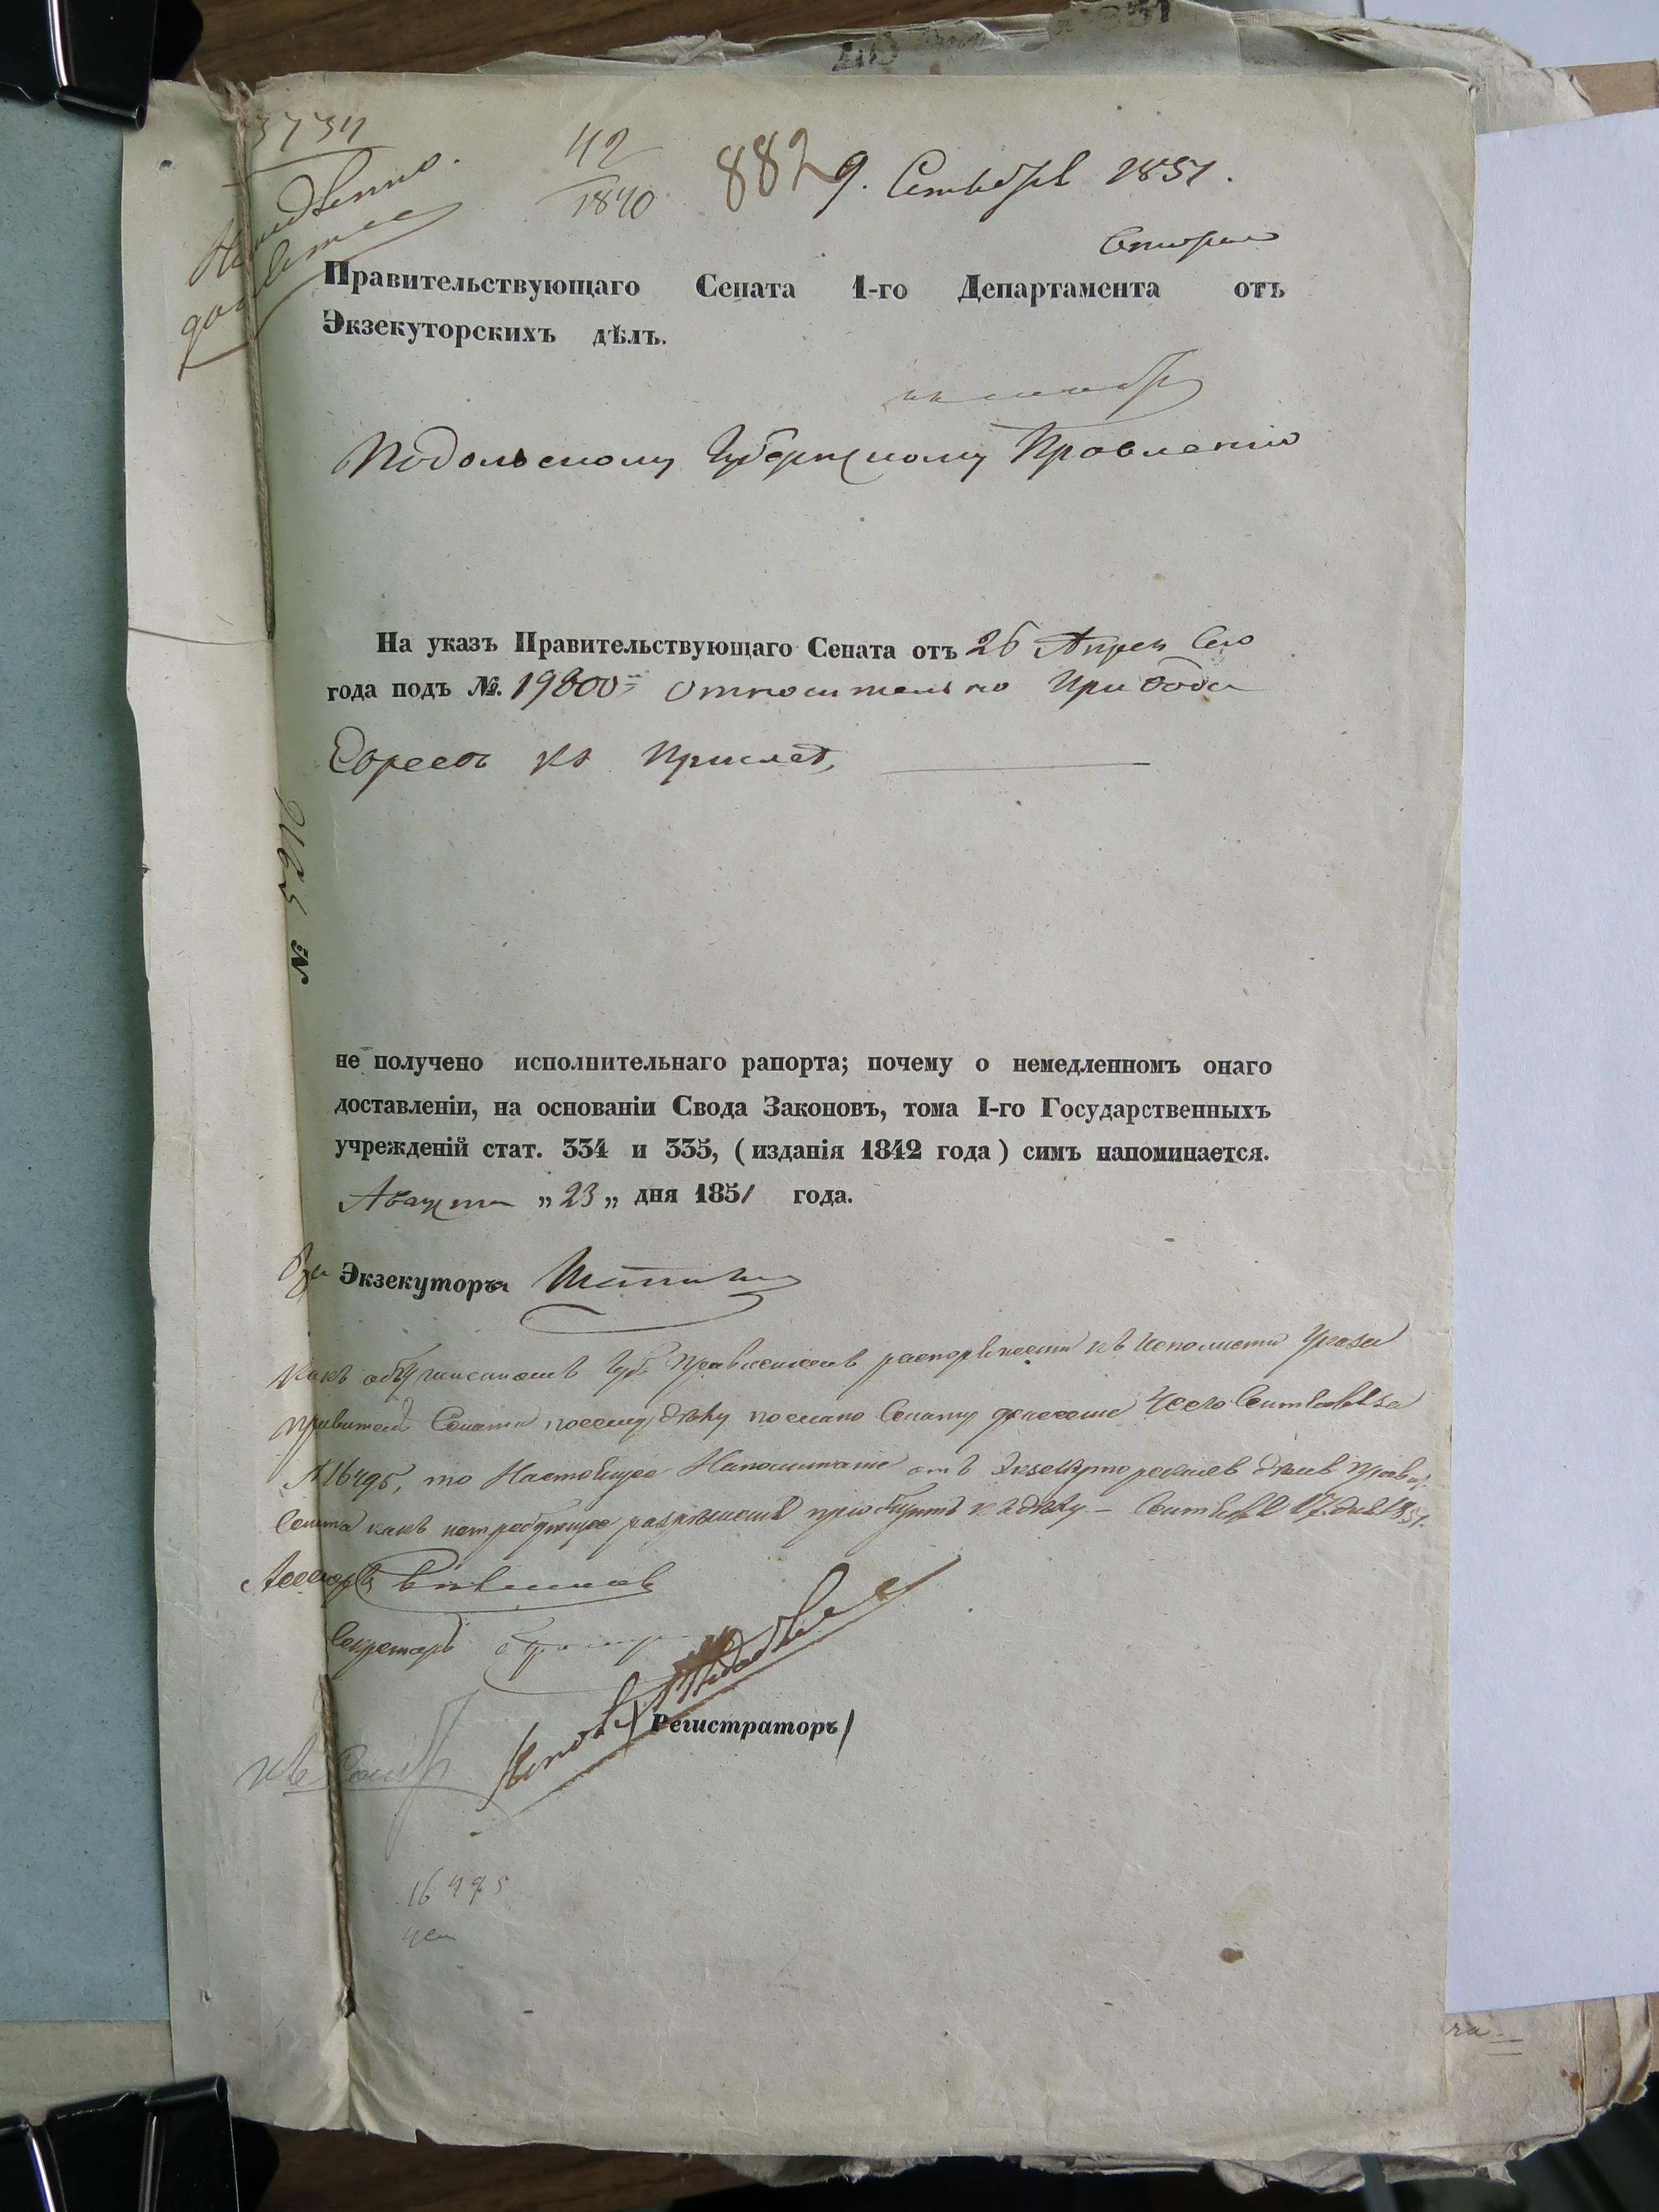 42
1840
882
9. Сентября 1851.
Правительствующаго Сената 1-го Департамента отъ
Экзекуторскихъ дѣлъ.
Подольскому Губернскому Правленію
На указъ Правительствующаго Сената отъ 26 Апрел Сего
года подъ №. 19800 относительно Привода
Евреевъ къ Присягѣ,
не получено исполнительнаго рапорта; почему о немедленномъ онаго
доставленіи, на основаніи Свода Законовъ, тома I-го Государственныхъ
учрежденій стат. 334 и 335, (изданія 1842 года) симъ напоминается.
Августа „ 23 „ дня 1851 года.
За Экзекутора
Какъ Губ Правленіемъ къ Указа
Сената посему дѣлу послано Сенату донесеніе Сентября за
№ 16495, то Настоящее Напоминаніе отъ Экзекуторскихъ дѣлъ Правит.
Сената какъ нетребующее разрѣшенія пріобщить къ дѣлу – Сентября 17 дня 1851.
Ассесоръ
Секретарь
Регистраторъ
16495